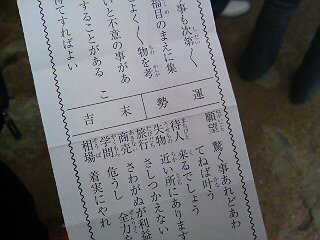 事も次第〱
福日のまえに集
よく〱物を考
いと不意の事があ
こ
することがある
すればよい
運勢
末吉
願望 驚く事あれどあわ
てねば叶う
待人 来るでしょう
失物 近い所にあります
旅行 さしつかえない
商売 さわがぬが利益
学問 危うし 全力を
相場 着実にやれ